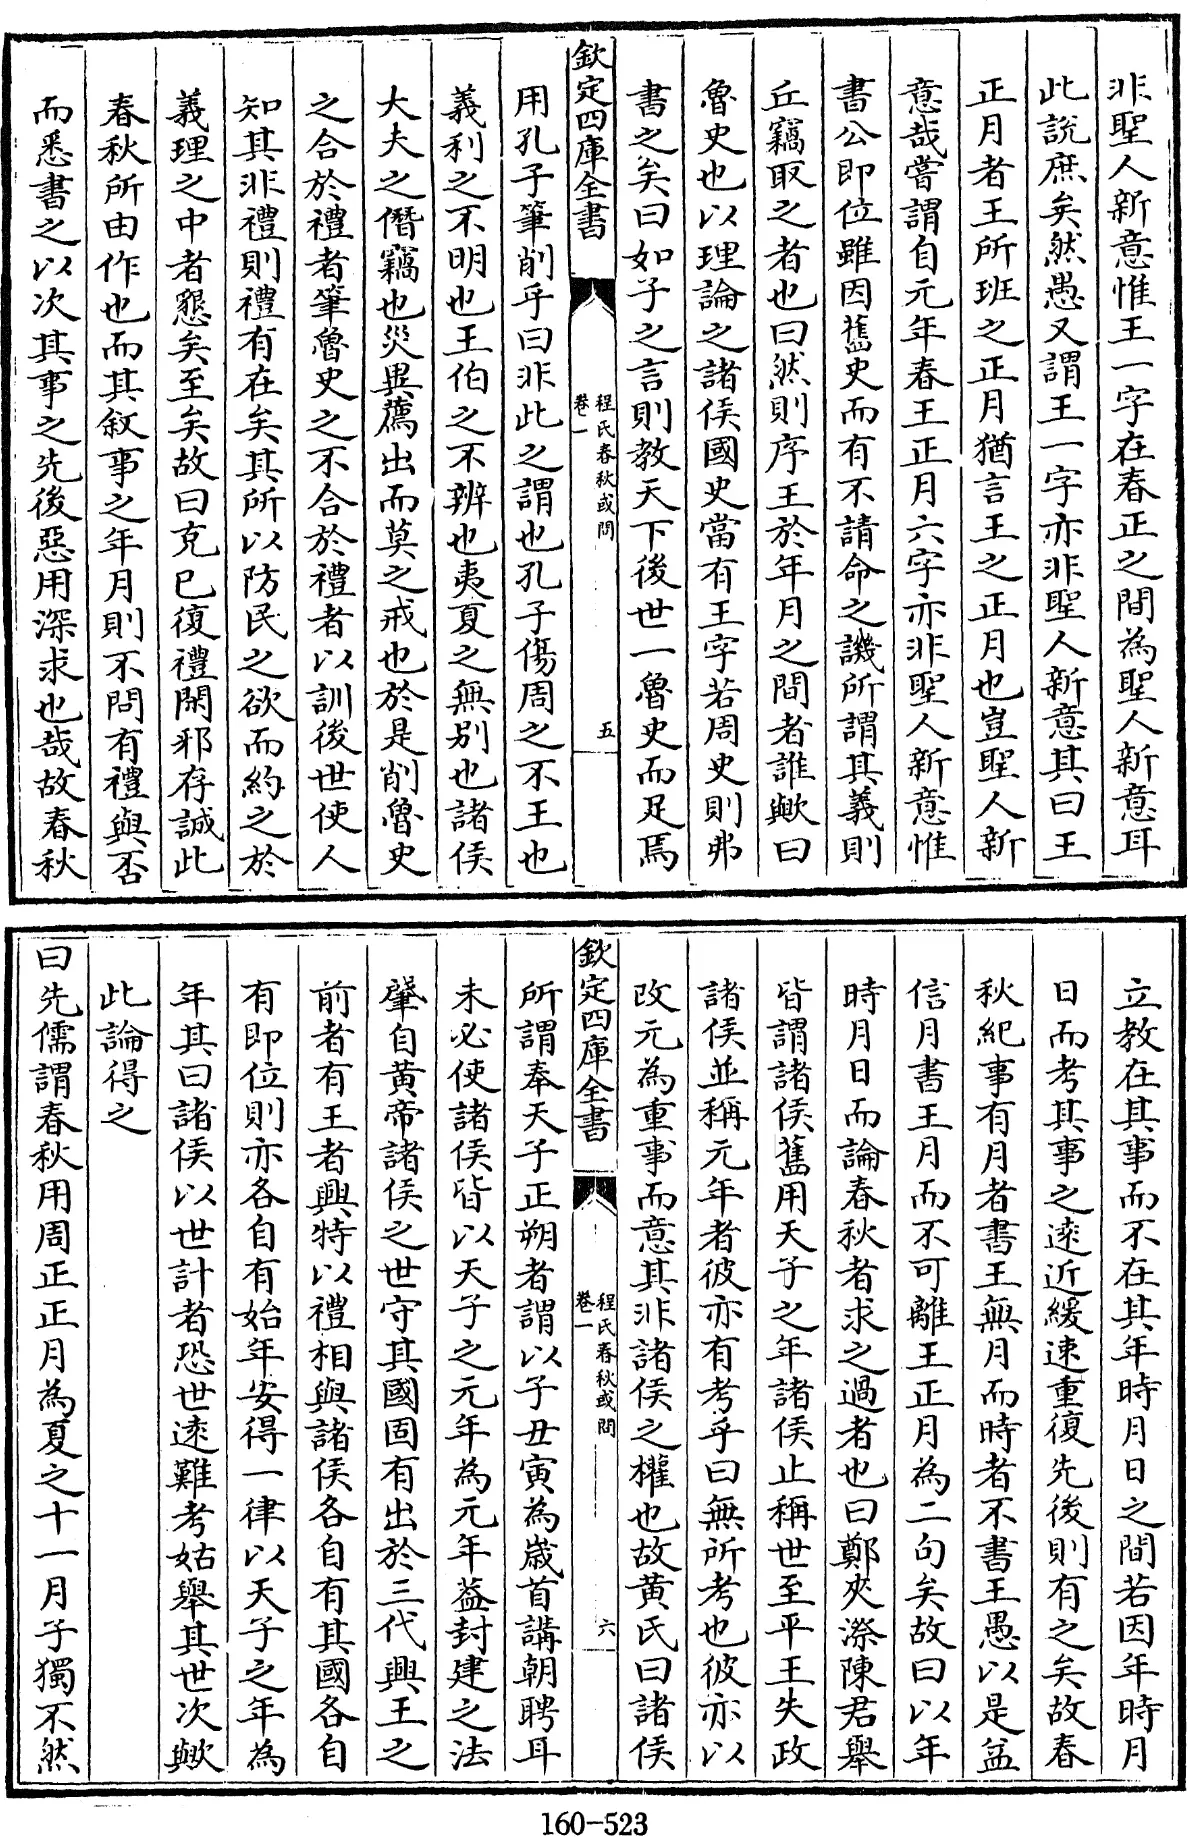 非聖人新意惟王一字在春正之間為聖人新意耳
此說庶矣然愚又謂王一字亦非聖人新意其曰王
正月者王所班之正月猶言王之正月也豈聖人新
意哉嘗謂自元年春王正月六字亦非聖人新意惟
書公即位雖因舊史而有不請命之譏所謂其義則
丘竊取之者也曰然則序王於年月之間者誰歟曰
魯史也以理論之諸侯國史當有王字若周史則弗
書之矣曰如子之言則教天下後世一魯史而足焉
欽定四庫全書
程氏春秋或問
卷一
五
用孔子筆削乎曰非此之謂也孔子傷周之不王也
義利之不明也王伯之不辨也夷夏之無别也諸侯
大夫之僭竊也災異薦出而莫之戒也於是削魯史
之合於禮者筆魯史之不合於禮者以訓後世使人
知其非禮則禮有在矣其所以防民之欲而約之於
義理之中者懇矣至矣故曰克已復禮閑邪存誠此
春秋所由作也而其敘事之年月則不問有禮與否
而悉書之以次其事之先後惡用深求也哉故春秋
立教在其事而不在其年時月日之間若因年時月
日而考其事之逺近緩速重復先後則有之矣故春
秋紀事有月者書王無月而時者不書王愚以是益
信月書王月而不可離王正月為二句矣故曰以年
時月日而論春秋者求之過者也曰鄭夾漈陳君舉
皆謂諸侯舊用天子之年諸侯止稱世至平王失政
諸侯並稱元年者彼亦有考乎曰無所考也彼亦以
改元為重事而意其非諸侯之權也故黄氏曰諸侯
欽定四庫全書
程氏春秋或問
卷一
六
所謂奉天子正朔者謂以子丑寅為歲首講朝聘耳
未必使諸侯皆以天子之元年為元年葢封建之法
肇自黄帝諸侯之世守其國固有出於三代興王之
前者有王者興特以禮相與諸侯各自有其國各自
有即位則亦各自有始年安得一律以天子之年為
年其曰諸侯以世計者恐世逺難考姑舉其世次歟
此論得之
曰先儒謂春秋用周正正月為夏之十一月子獨不然
160-523